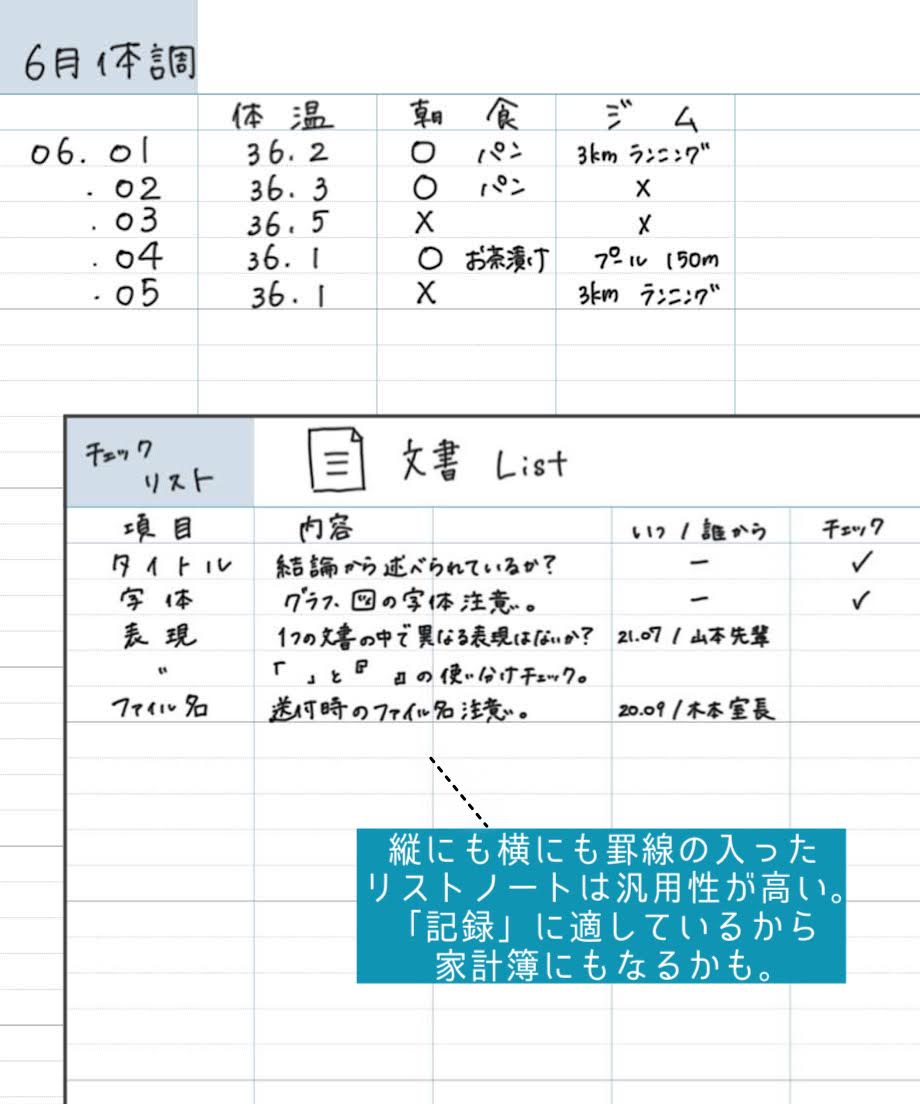 6月体調
体温 朝食 ジム
06.01 36.2 ○ パン 3km ランニング
.02 36.3 ○ パン ×
.03 36.5 × ×
.04 36.1 ○ お茶漬け プール 150m
.05 36.1 × 3km ランニング
チェック
リスト
文書 List
項目 内容 いつ / 誰から チェック
タイトル 結論から述べられているか? ー ✓
字体 グラフ、図の字体注意。 ー ✓
表現 1つの文書の中で異なる表現はないか? 21.07 / 山本先輩
〃 「 」と『 』の使い分けチェック。
ファイル名 送付時のファイル名注意。 20.09 / 木本室長
縦にも横にも罫線の入った
リストノートは汎用性が高い。
「記録」に適しているから
家計簿にもなるかも。